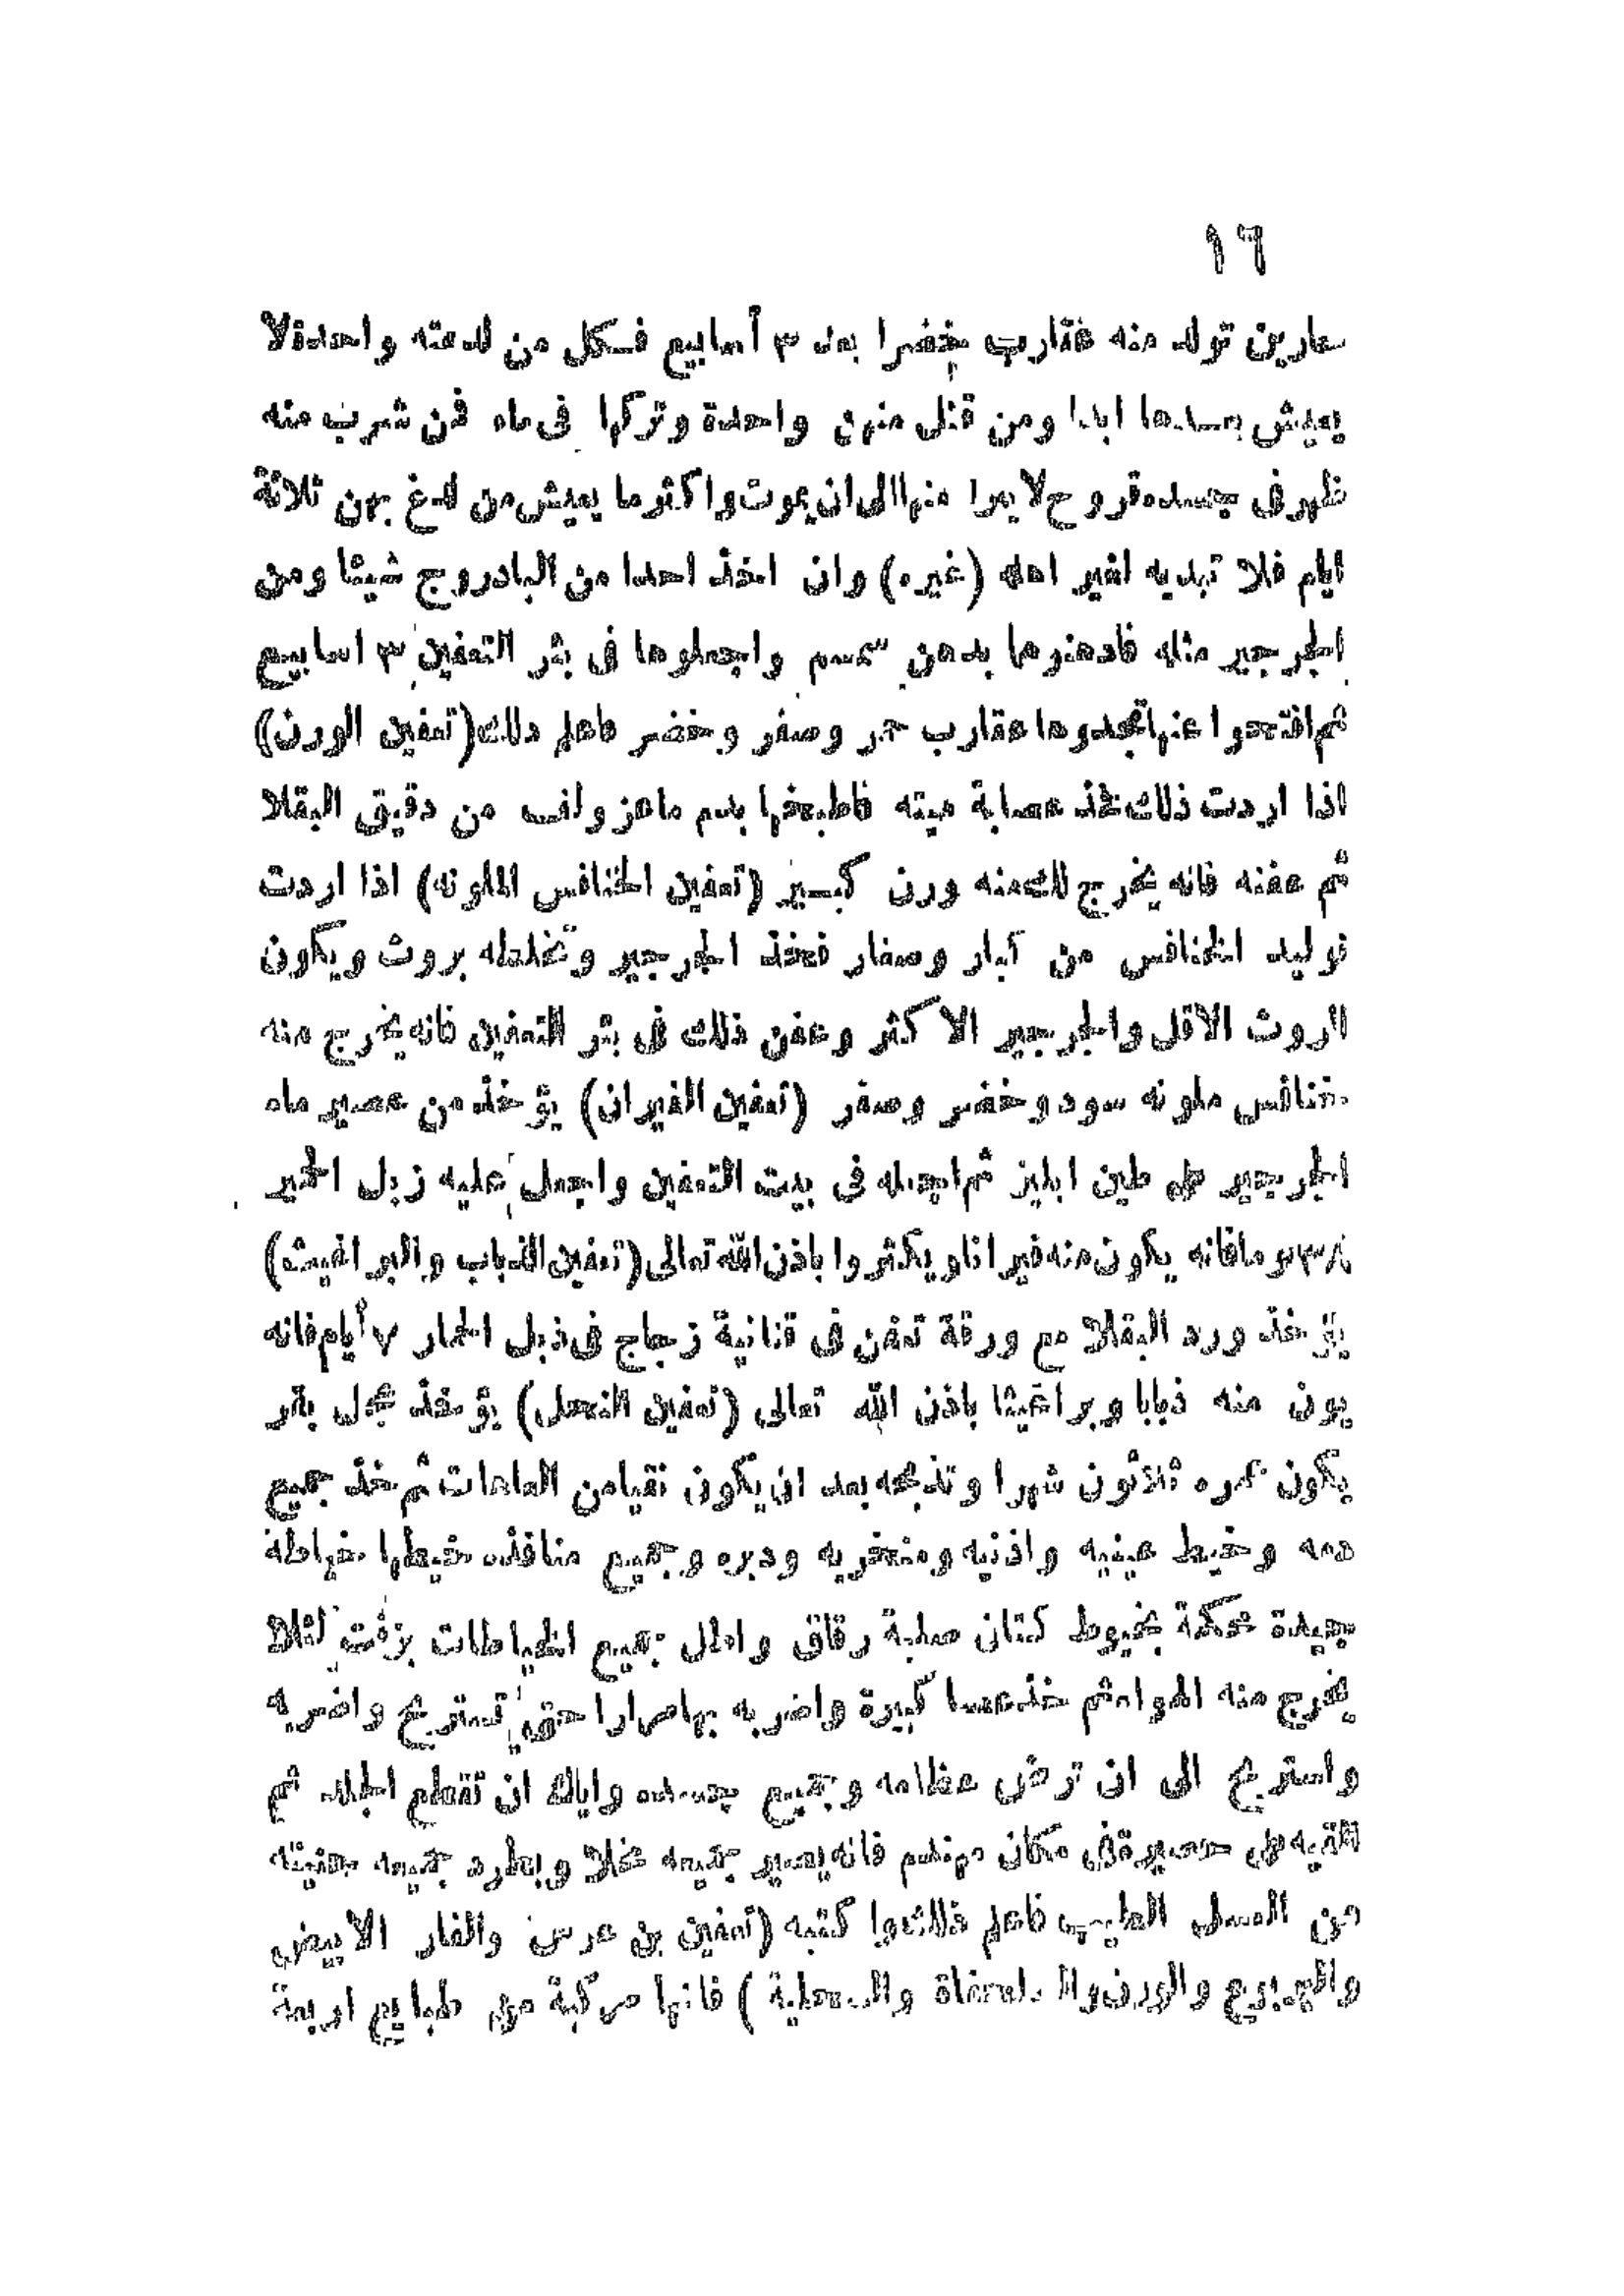 ١٦
سارين تولد منه عقارب خضرا بعد ٣ أسابيع فكل من لدعته واحدة لا
يعيش بعدها ابدا ومن قتل منهن واحدة وتركها فى ماء فمن شرب منه
ظهر فى جسده قروح لا يبرا منها الى ان يموت واكثر ما يعيش من لدغ بهن ثلاثة
ايام فلا تبديه لغير اهله (غيره) وان اخذ احدا من البادروج شيئا ومن
الجرجير مثله فادهنوها بدهن سمسم واجعلوها فى بئر التعفين ٣ اسابيع
ثم افتحوا عنها تجدوها عقارب حمر وصفر وخضر فاعلم ذلك (تعفين الورن)
اذا اردت ذلك فخذ عصابة ميته فاطبخها بدم ماعز ولف من دقيق البقلا
ثم عفنه فانه يخرج لك منه ورن كبير (تعفين الخنافس الملونه) اذا اردت
توليد الخنافس من كبار وصغار فخذ الجرجير وتخلطه بروث ويكون
الروث الاقل والجرجير الاكثر وعفن ذلك فى بئر التعفين فانه يخرج منه
خنافس ملونه سود وخضر وصفر (تعفين الفيران) يؤخذ من عصير ماء
الجرجير على طين ابليز ثم اجعله فى بيت التعفين واجعل عليه زبل الحمير
٣٨ يوما فانه يكون منه فيرانا ويكثروا باذن الله تعالى (تعفين الذباب والبراغيث)
يؤخذ ورد البقلا مع ورقة تعفن فى قنانية زجاج فى ذبل الحمار ٧ أيام فانه
يون منه ذبابا وبراغيثا باذن الله تعالى (تعفين النحل) يؤخذ عجل بقر
يكون عمره ثلاثون شهرا وتذبحه بعد ان يكون نقيا من العاهات ثم خذ جميع
دمه وخيط عينيه واذنيه ومنخريه ودبره وجميع منافذه خيطها خياطة
جيدة محكمة بخيوط كتان صلبة رقاق واطل جميع الخياطات بزفت لئلا
يخرج منه الهواء ثم خذ عصا كبيرة واضربه بها مرارا حتى تستريح واضربه
واستريح الى ان ترض عظامه وجميع جسده واياك ان تقطع الجلد ثم
القيه على حصيرة فى مكان فانه يصير جميعه نحلا ويطرد جميعه جنيته
من العسل الطيب فاعلم ذلك واكتبه (تعفين بن عرس والفار الابيض
واليربوع والورن والسلحفاة والسحلية) فانها مركبة من طبايع اربعة